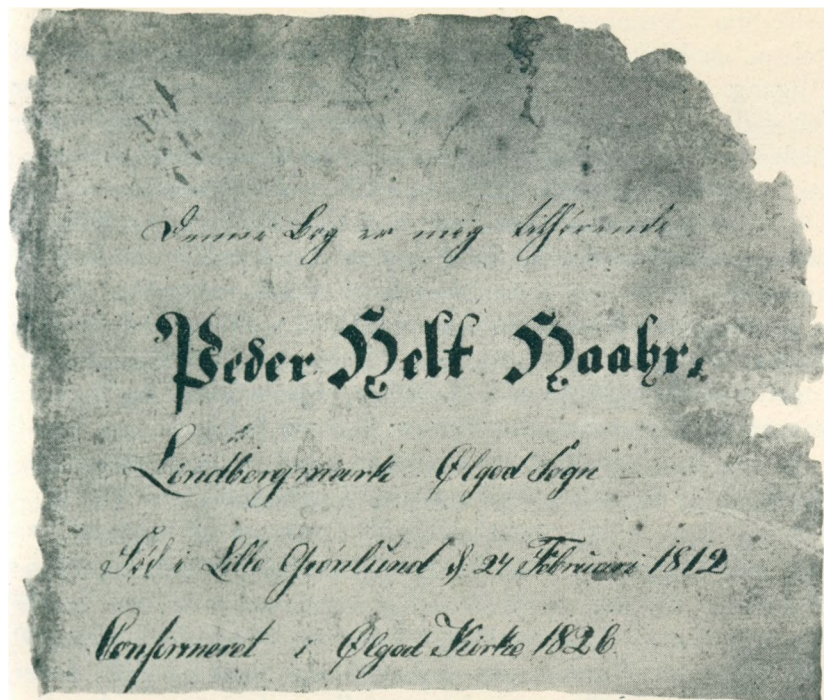 Denne Bog er mig tilhørende
Peder Helt Haahr.
Lindbergmark Ølgod Sogn
Fød i Lille Grønlund d. 24 Februari 1812
Confirmeret i Ølgod Kirke 1826